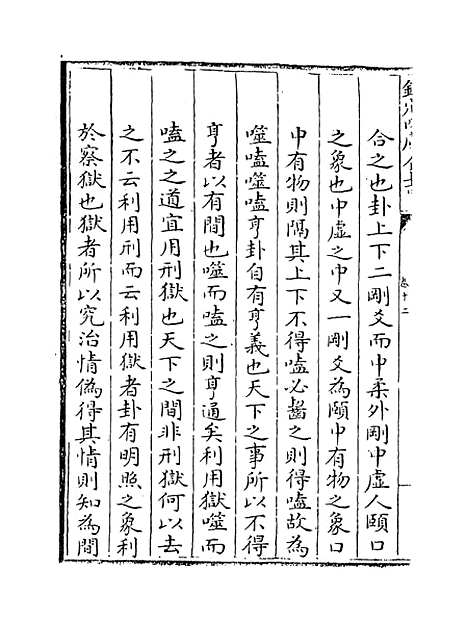 欽定四庫全書
卷十二
合之也卦上下二剛爻而中柔外剛中虛人頤口
之象也中虛之中又一剛爻為頤中有物之象口
中有物則隔其上下不得嗑必齧之則得嗑故為
噬嗑噬嗑亨卦自有亨義也天下之事所以不得
亨者以有間也噬而嗑之則亨通矣利用獄噬而
嗑之之道宜用刑獄也天下之間非刑獄何以去
之不云利用刑而云利用獄者卦有明照之象利
於察獄也獄者所以究治情偽得其情則知為間